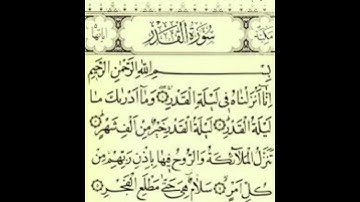 سُورَةُ الْقَدْرِ مَكِّيَّةٌ
بِسْمِ اللهِ الرَّحْمٰنِ الرَّحِيمِ
اِنَّا اَنْزَلْنَاهُ فِى لَيْلَةِ الْقَدْرِ وَمَا اَدْرٰيكَ مَا
لَيْلَةُ الْقَدْرِ لَيْلَةُ الْقَدْرِ خَيْرٌ مِنْ اَلْفِ شَهْرٍ
تَنَزَّلُ الْمَلٰٓئِكَةُ وَالرُّوحُ فِيهَا بِاِذْنِ رَبِّهِمْ مِنْ
كُلِّ اَمْرٍ سَلَامٌ هِىَ حَتّٰى مَطْلَعِ الْفَجْرِ